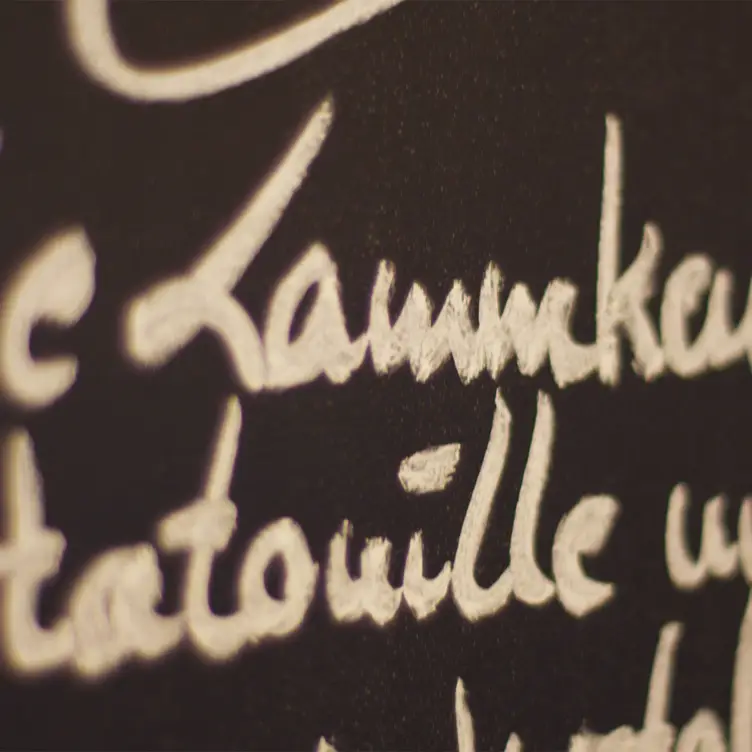 e Lammkeu
tatouille u